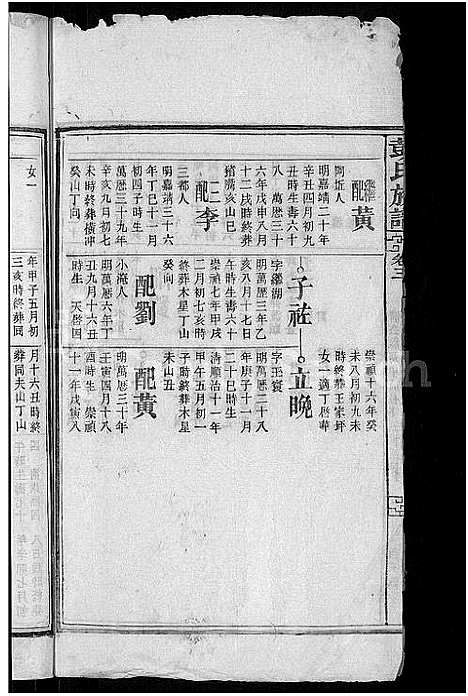 彭氏族譜
卷三
繼配黃
陶坊人
明嘉靖二十年
辛丑四月初九
丑時生壽六十
八 萬厯三十
六年戊申八月
十二戌時終葬
猪腰亥山巳
三配李
三都人
明嘉靖三十六
年丁巳十一月
初四子時生
萬厯三十九年
辛亥九月初三
未時終葬橫冲
癸山丁向
女一
子祚
字繼湖
明萬厯三年乙
亥八月十七日
午時生壽六十
崇禎七年甲戌
二月初七亥時
終葬木星丁山
癸向
配劉
小淹人
明萬厯六年丁
丑九月十六丑
時生 天啓四
年甲子五月初
三亥時終葬同
崇禎十六年癸
未八月初九未
時終葬王家坪
女一適丁歷華
立晚
字玉賓
明萬厯二十八
年庚子十一月
二十巳時生
清順治十一年
甲午五月初一
子時終葬木星
未山丑
配黃
明萬厯三十年
壬寅四月十八
酉時生 崇禎
十一年戊寅八
月十六丑時終
葬同夫山丁山